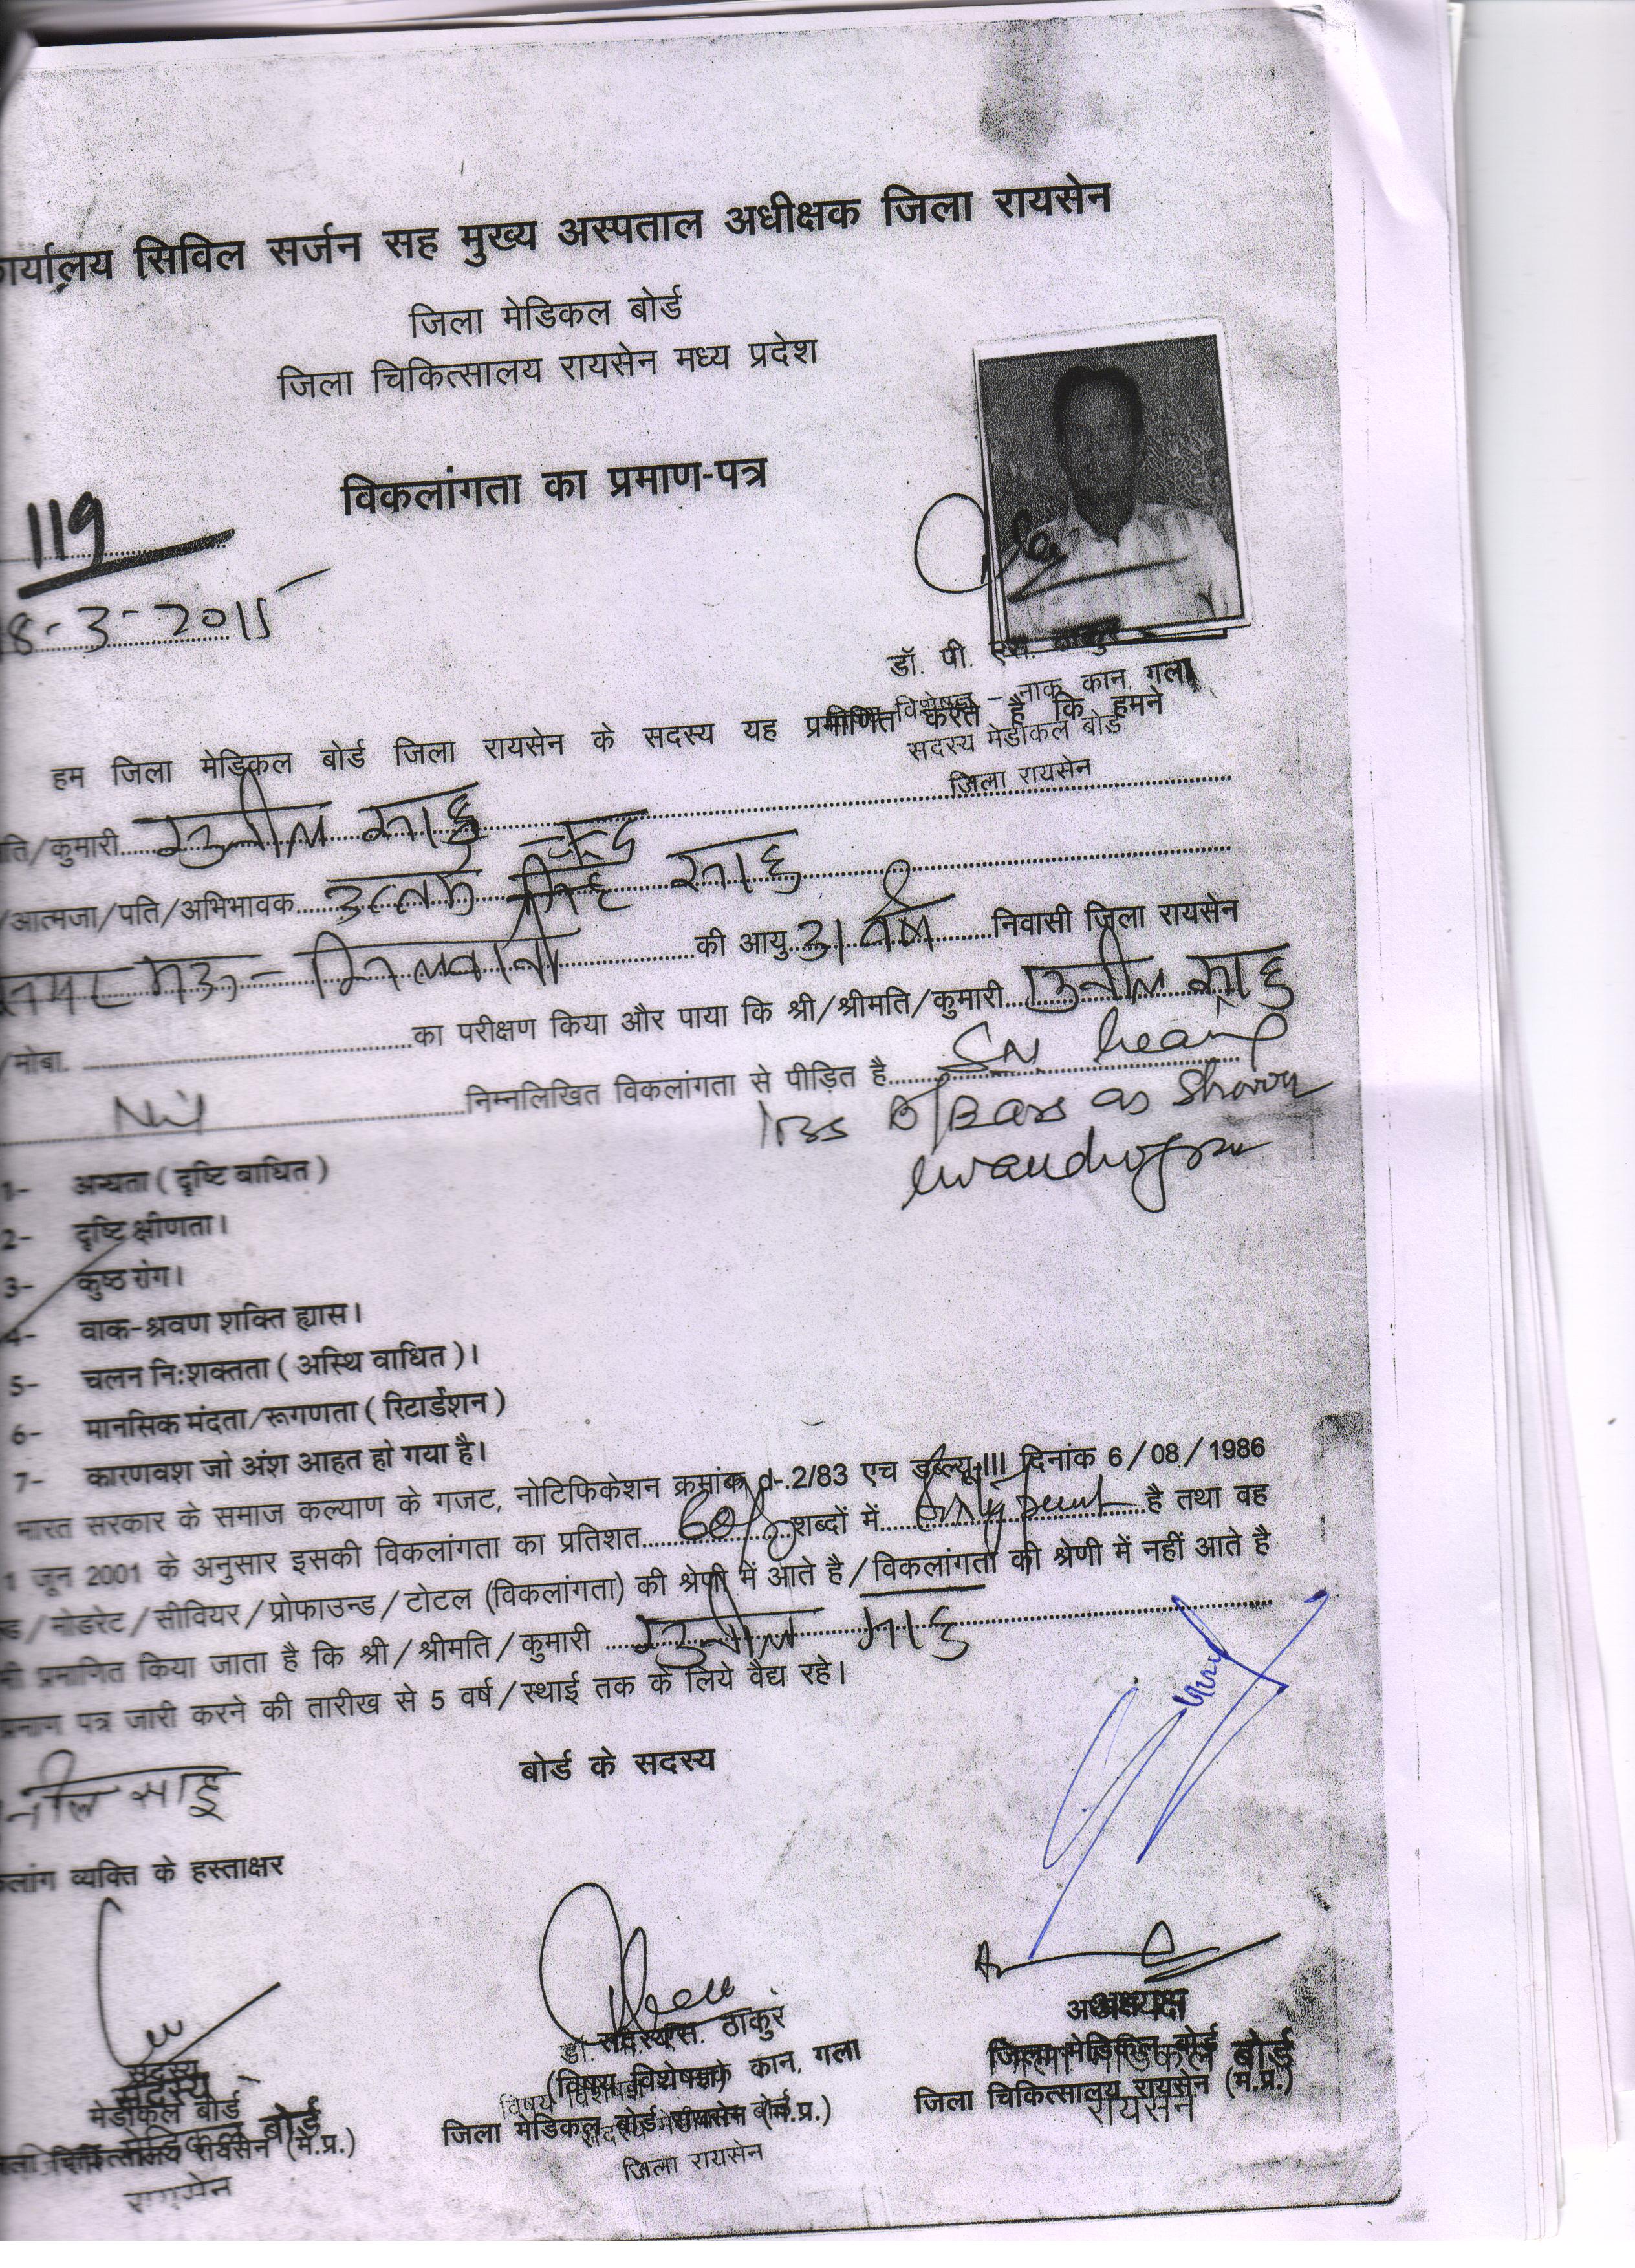 कार्यालय सिविल सर्जन सह मुख्य अस्पताल अधीक्षक जिला रायसेन
जिला मेडिकल बोर्ड
जिला चिकित्सालय रायसेन मध्य प्रदेश
विकलांगता का प्रमाण-पत्र
119
8-3-2015
डॉ. पी. एस. ठाकुर
विशेषज्ञ - नाक, कान, गला
सदस्य मेडीकल बोर्ड
जिला रायसेन
हम जिला मेडिकल बोर्ड जिला रायसेन के सदस्य यह प्रमाणित करते है कि हमने
ति/कुमारी सुनील साहु
/आत्मजा/पति/अभिभावक उत्तम चन्द साहु
सिलवानी की आयु 31 वर्ष निवासी जिला रायसेन
/मोबा. का परीक्षण किया और पाया कि श्री/श्रीमति/कुमारी सुनील साहु
Nil निम्नलिखित विकलांगता से पीड़ित है SN hearing
loss B/L Ears as shown
in audiogram
1- अन्धता ( दृष्टि वाधित )
2- दृष्टि क्षीणता।
3- कुष्ठ रोग।
4- वाक-श्रवण शक्ति ह्यास।
5- चलन नि:शक्तता ( अस्थि वाधित )।
6- मानसिक मंदता/रूगणता ( रिटार्डेशन )
7- कारणवश जो अंश आहत हो गया है।
भारत सरकार के समाज कल्याण के गजट, नोटिफिकेशन क्रमांक d-.2/83 एच डब्ल्यू III दिनांक 6/08/1986
1 जून 2001 के अनुसार इसकी विकलांगता का प्रतिशत 60% शब्दों में sixty percent है तथा वह
ड/मोडरेट/सीवियर/प्रोफाउन्ड/टोटल (विकलांगता) की श्रेणी में आते है/विकलांगता की श्रेणी में नहीं आते है
भी प्रमाणित किया जाता है कि श्री/श्रीमति/कुमारी सुनील साहु
प्रमाण पत्र जारी करने की तारीख से 5 वर्ष/स्थाई तक के लिये वैद्य रहे।
बोर्ड के सदस्य
नील साहू
कलांग व्यक्ति के हस्ताक्षर
सदस्य
मेडीकल बोर्ड
चिकित्सालय रायसेन (म.प्र.)
रायसेन
डॉ. पी. एस. ठाकुर
(विषय विशेषज्ञ) कान, गला
जिला मेडिकल बोर्ड रायसेन (म.प्र.)
जिला रायसेन
अध्यक्ष
जिला मेडिकल बोर्ड
जिला चिकित्सालय रायसेन (म.प्र.)
रायसेन